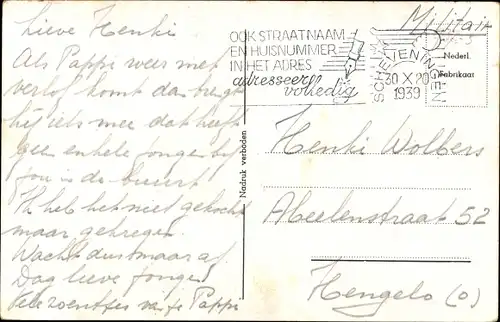 Lieve Henki
Als Pappi weer met
verlof komt dan brengt
hij iets mee dat heeft
geen enkele jongen bij
jou in de buurt
Ik heb het niet gekocht
maar gekregen.
Wacht dus maar af.
Dag lieve jongen
vele zoentjes van je Pappi
Nadruk verboden
OOK STRAATNAAM
EN HUISNUMMER
IN HET ADRES
adresseer
volledig
SCHEVENINGEN
30 X 20
1939
Militair
Nederl.
Fabrikaat
Henki Wolbers
Abeelenstraat 52
Hengelo (O)